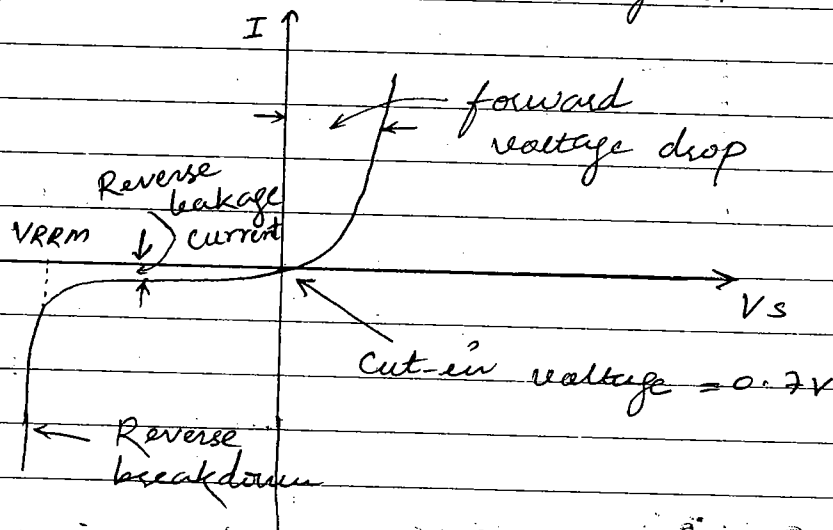 I
forward
voltage drop
Reverse
leakage
current
VRRM
Vs
Cut-in voltage = 0.7V
Reverse
breakdown